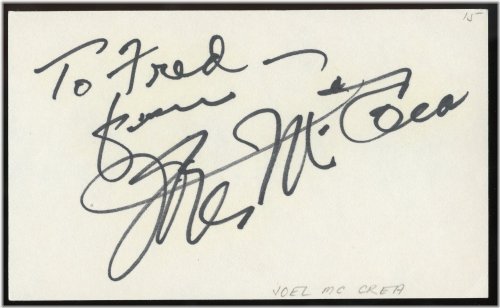 15-
To Fred —
from
Joel McCrea
JOEL MC CREA